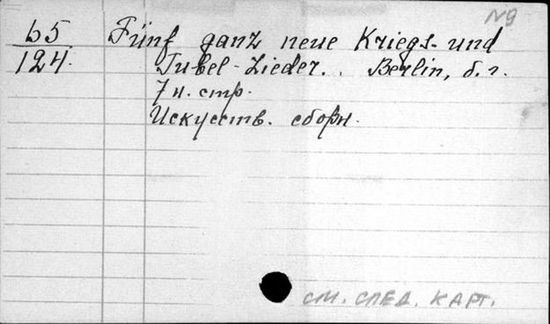 №9
65 Fünf ganz neue Kriegs- und
124. Jubel-Lieder.. Berlin, б.г.
7 н. стр.
Искусств. сборн.
см. след. карт.